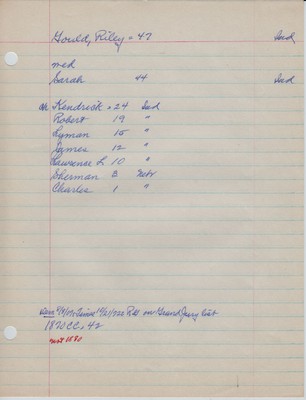 Gould, Riley = 47 Ind
med
Sarah 44 Ind
ch Kendrick = 24 Ind
Robert 19 "
Lyman 15 "
James 12 "
Lawrence L 10 "
Sherman 3 Nebr
Charles 1 "
on Grand Jury list
1870 CC, 42
not 1880